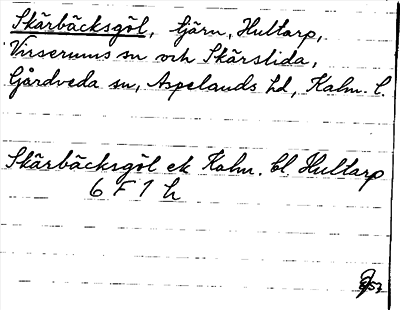 Skärbäcksgöl, tjärn, Hultarp,
Virserums sn och Skärslida,
Gårdveda sn, Aspelands hd, Kalm. l.
Skärbäcksgöl ek Kalm. bl Hultarp
6 F 1 h